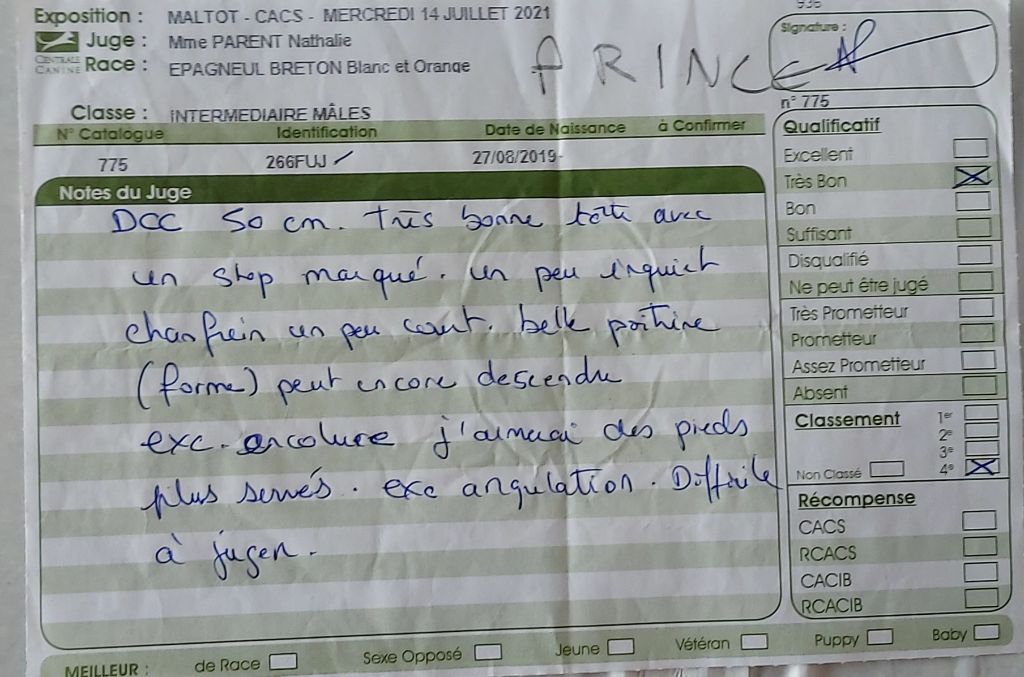 Exposition : MALTOT - CACS - MERCREDI 14 JUILLET 2021
Juge : Mme PARENT Nathalie
CENTRALE CANINE Race : EPAGNEUL BRETON Blanc et Orange
PRINCE
Signature :
n° 775
Classe : INTERMEDIAIRE MÂLES
N° Catalogue Identification Date de Naissance à Confirmer
775 266FUJ 27/08/2019-
Notes du Juge
DCC 50 cm. Très bonne tête avec
un stop marqué. un peu inquiet
chanfrein un peu court. belle poitrine
(forme) peut encore descendre
exc. encolure j'aimerai des pieds
plus serrés. exc angulation. Difficile
à juger.
Qualificatif
Excellent
Très Bon
Bon
Suffisant
Disqualifié
Ne peut être jugé
Très Prometteur
Prometteur
Assez Prometteur
Absent
Classement 1er
2e
3e
Non Classé 4e
Récompense
CACS
RCACS
CACIB
RCACIB
MEILLEUR : de Race Sexe Opposé Jeune Vétéran Puppy Baby